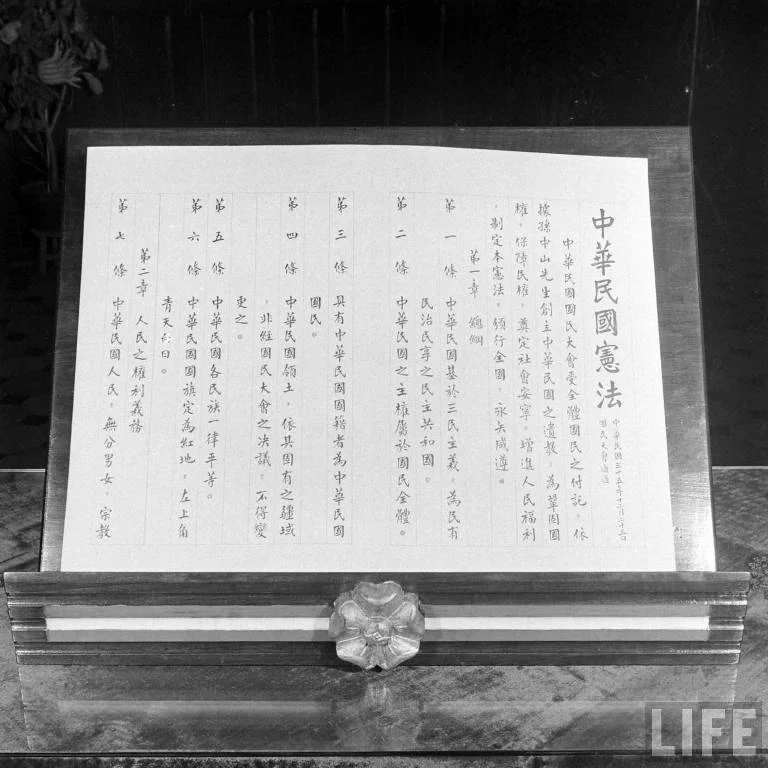 中華民國憲法
中華民國三十五年十二月二十五日
國民大會通過
中華民國國民大會受全體國民之付託，依
據孫中山先生創立中華民國之遺教，為鞏固國
權，保障民權，奠定社會安寧，增進人民福利
，制定本憲法，頒行全國，永矢咸遵。
第一章 總綱
第一條 中華民國基於三民主義，為民有
民治民享之民主共和國。
第二條 中華民國之主權屬於國民全體。
第三條 具有中華民國國籍者為中華民國
國民。
第四條 中華民國領土，依其固有之疆域
，非經國民大會之決議，不得變
更之。
第五條 中華民國各民族一律平等。
第六條 中華民國國旗定為紅地，左上角
青天白日。
第二章 人民之權利義務
第七條 中華民國人民，無分男女，宗教
LIFE